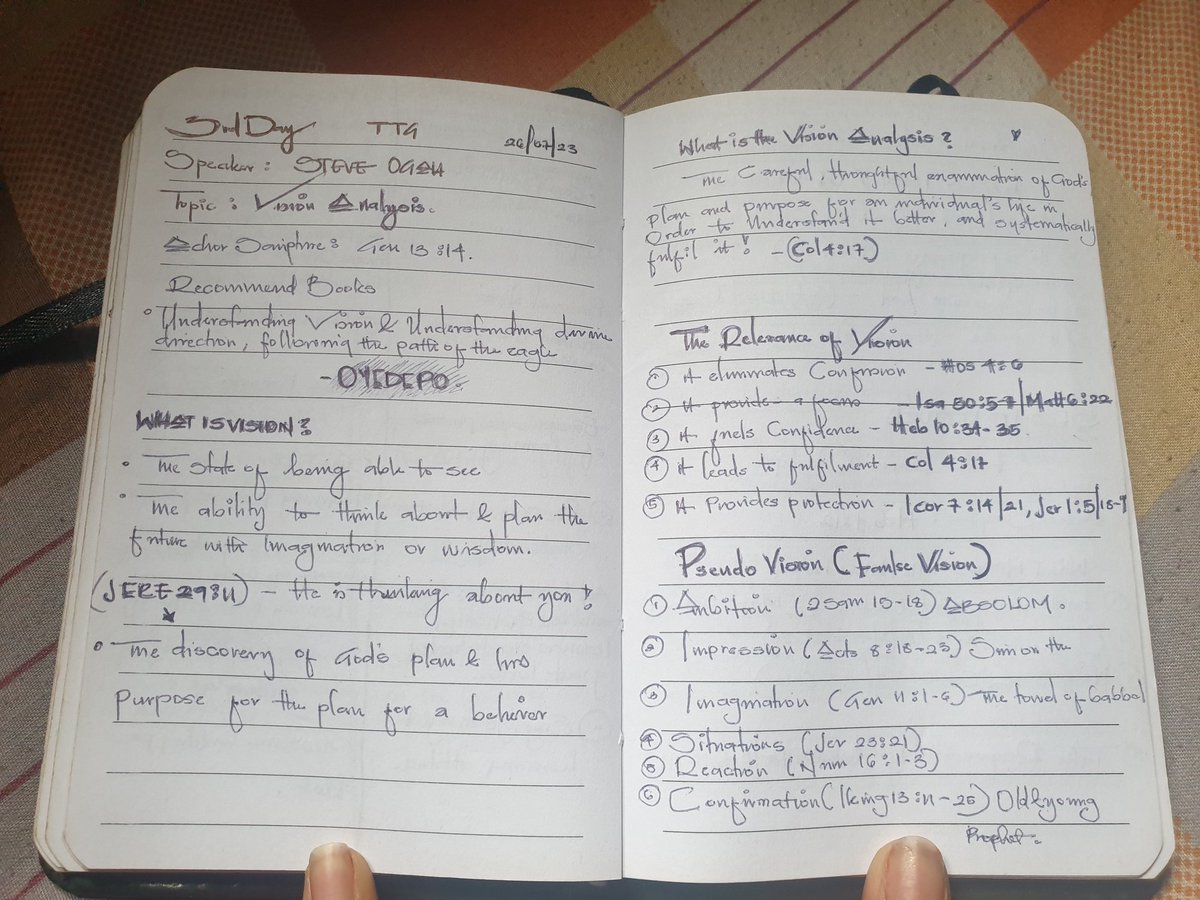 3rd Day TTG 26/07/23
Speaker: STEVE OGAH
Topic: Vision Analysis.
Achor Scripture: Gen 13:14.
Recommend Books
• Understanding Vision & Understanding divine
direction, following the path of the eagle
- OYEDEPO.
WHAT IS VISION?
• The state of being able to see
• The ability to think about & plan the
future with Imagination or wisdom.
(JERE 29:11) - He is thinking about you!
• The discovery of God's plan & his
Purpose for the plan for a believer
What is the Vision Analysis?
The Careful, thoughtful examination of God's
plan and purpose for an individual's life in
Order to Understand it better, and systematically
fulfil it! - (Col 4:17)
The Relevance of Vision
① It eliminates Confusion - Hos 4:6
② It provide a focus - Isa 50:5-7|Matt 6:22
③ It fuels Confidence - Heb 10:34-35
④ it leads to fulfilment - Col 4:17
⑤ It Provides protection - 1cor 7:14/21, Jer 1:5/18-
Pseudo Vision (Faulse Vision)
① Ambition (2Sam 15-18) ABSOLOM.
② Impression (Acts 8:18-23) Simon the
③ Imagination (Gen 11:1-6) - The towel of babbel
④ Situations (Jer 23:21)
⑤ Reaction (Num 16:1-3)
⑥ Confirmation (1king 13:11-25) Old & young
Prophet.